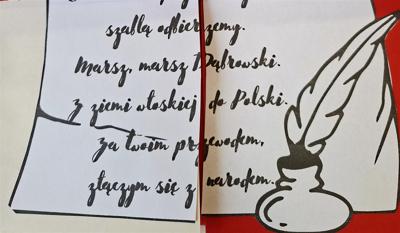 szablą odbierzemy.
Marsz, marsz Dąbrowski.
z ziemi włoskiej do Polski.
Za twoim przewodem,
złączym się z narodem.